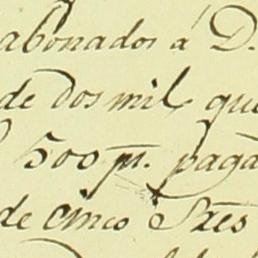 abonados á D.
de dos mil que
500 p.s. paga
de cinco S.res